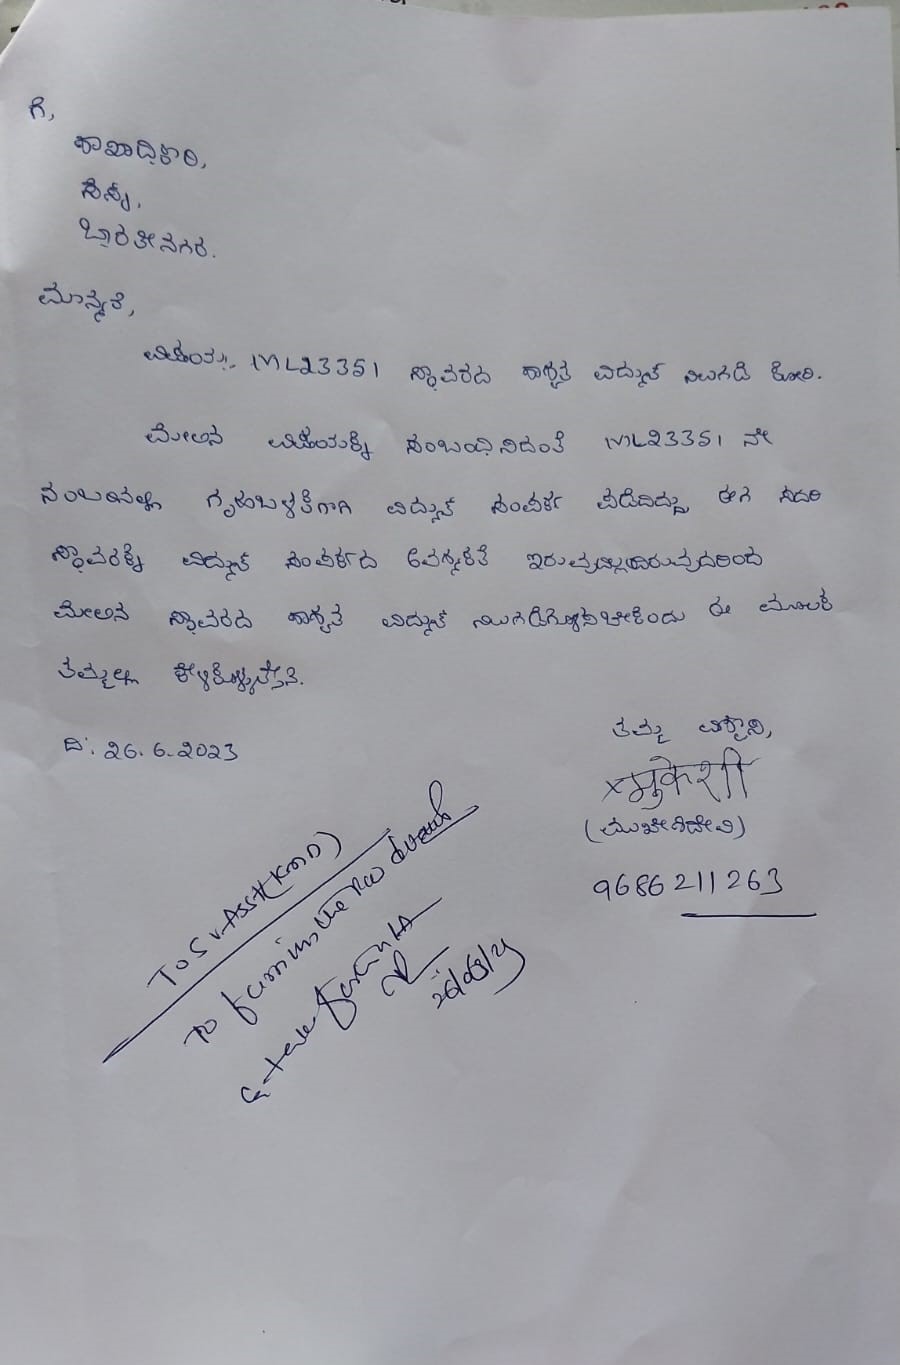 ಗೆ,
ಶಾಖಾಧಿಕಾರಿ,
ಸೆಸ್ಕ್,
ಭಾರತೀನಗರ.
ಮಾನ್ಯರೆ,
ವಿಷಯ:- ML23351 ಸ್ಥಾವರದ ಶಾಶ್ವತ ವಿದ್ಯುತ್ ನಿಲುಗಡೆ ಕೋರಿ.
ಮೇಲಿನ ವಿಷಯಕ್ಕೆ ಸಂಬಂಧಿಸಿದಂತೆ ML23351 ನೇ
ನಂಬರಿನಲ್ಲಿ ಗೃಹಬಳಕೆಗಾಗಿ ವಿದ್ಯುತ್ ಸಂಪರ್ಕ ಪಡೆದಿದ್ದು ಈಗ ಸದರಿ
ಸ್ಥಾವರಕ್ಕೆ ವಿದ್ಯುತ್ ಸಂಪರ್ಕದ ಅವಶ್ಯಕತೆ ಇರುವುದಿಲ್ಲವಾದುದರಿಂದ
ಮೇಲಿನ ಸ್ಥಾವರದ ಶಾಶ್ವತ ವಿದ್ಯುತ್ ನಿಲುಗಡೆಗೊಳಿಸಬೇಕೆಂದು ಈ ಮೂಲಕ
ತಮ್ಮಲ್ಲಿ ಕೇಳಿಕೊಳ್ಳುತ್ತೇನೆ.
ದಿ: 26.6.2023
ತಮ್ಮ ವಿಶ್ವಾಸಿ,
×मुकेशी
(ಮುಖೇಶಿದೇವಿ)
9686211263
To Sr. Asst (KMD)
To furnish the
& take further
26/08/24